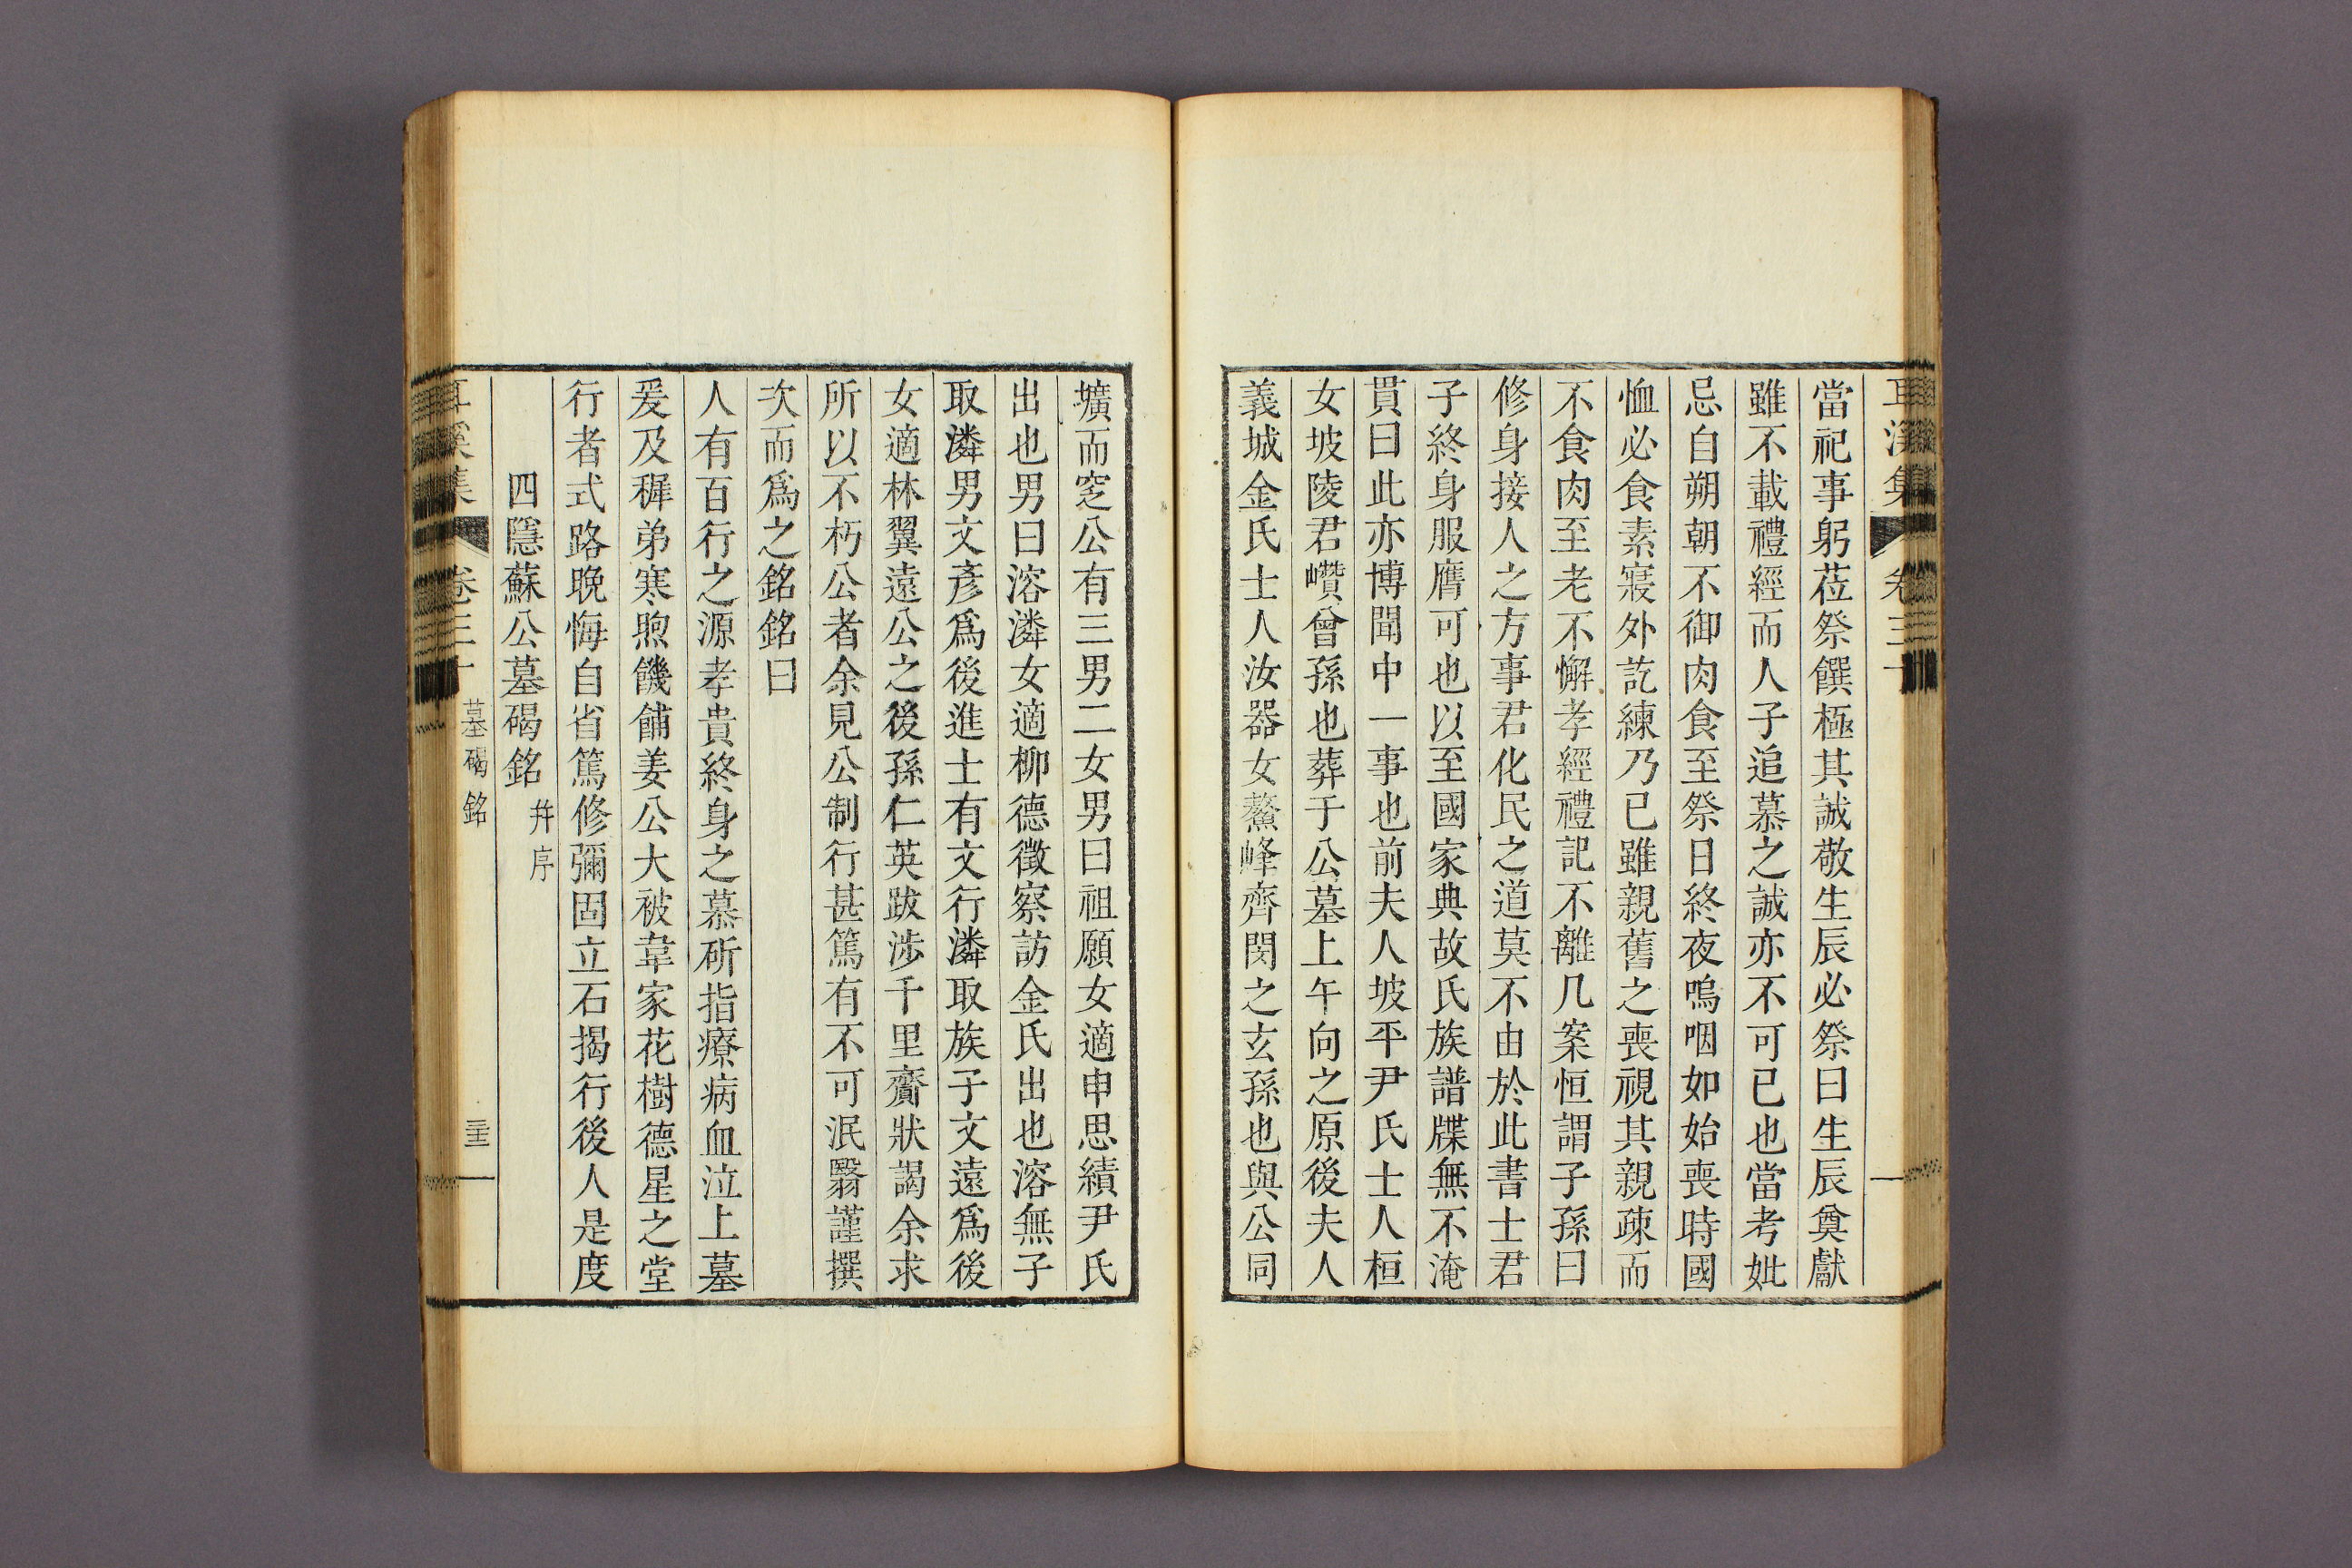 當祀事躬莅祭饌極其誠敬生辰必祭曰生辰奠獻
雖不載禮經而人子追慕之誠亦不可已也當考妣
忌自朔朝不御肉食至祭日終夜嗚咽如始喪時國
恤必食素寢外訖練乃已雖親舊之喪視其親疎而
不食肉至老不懈孝經禮記不離几案恒謂子孫曰
修身接人之方事君化民之道莫不由於此書士君
子終身服膺可也以至國家典故氏族譜牒無不淹
貫曰此亦博聞中一事也前夫人坡平尹氏士人桓
女坡陵君巑曾孫也葬于公墓上午向之原後夫人
義城金氏士人汝器女鰲峰齊閔之玄孫也與公同
壙而窆公有三男二女男曰祖願女適申思績尹氏
出也男曰溶潾女適柳德徵察訪金氏出也溶無子
取潾男文彥爲後進士有文行潾取族子文遠爲後
女適林翼遠公之後孫仁英跋涉千里齎狀謁余求
所以不朽公者余見公制行甚篤有不可泯翳謹撰
次而爲之銘銘曰
人有百行之源孝貴終身之慕斫指療病血泣上墓
爰及穉弟寒煦饑餔姜公大被韋家花樹德星之堂
行者式路晩悔自省篤修彌固立石揭行後人是度
四隱蘇公墓碣銘 幷序
耳溪集 卷三十 墓碣銘